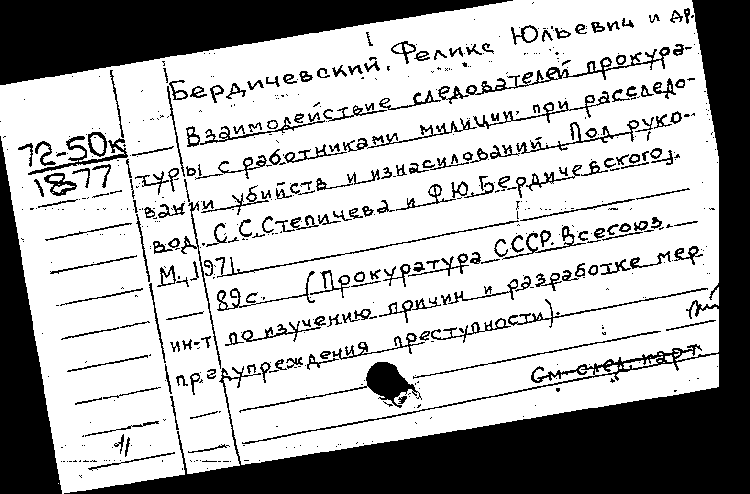 Бердичевский, Феликс Юльевич и др.
72-50к
1877
Взаимодействие следователей прокура-
туры с работниками милиции при расследо-
вании убийств и изнасилований. [Под руко-
вод. С.С.Степичева и Ф.Ю.Бердичевского].
М., 1971.
89с. (Прокуратура СССР. Всесоюз.
ин-т по изучению причин и разработке мер
предупреждения преступности).
См. след. карт.